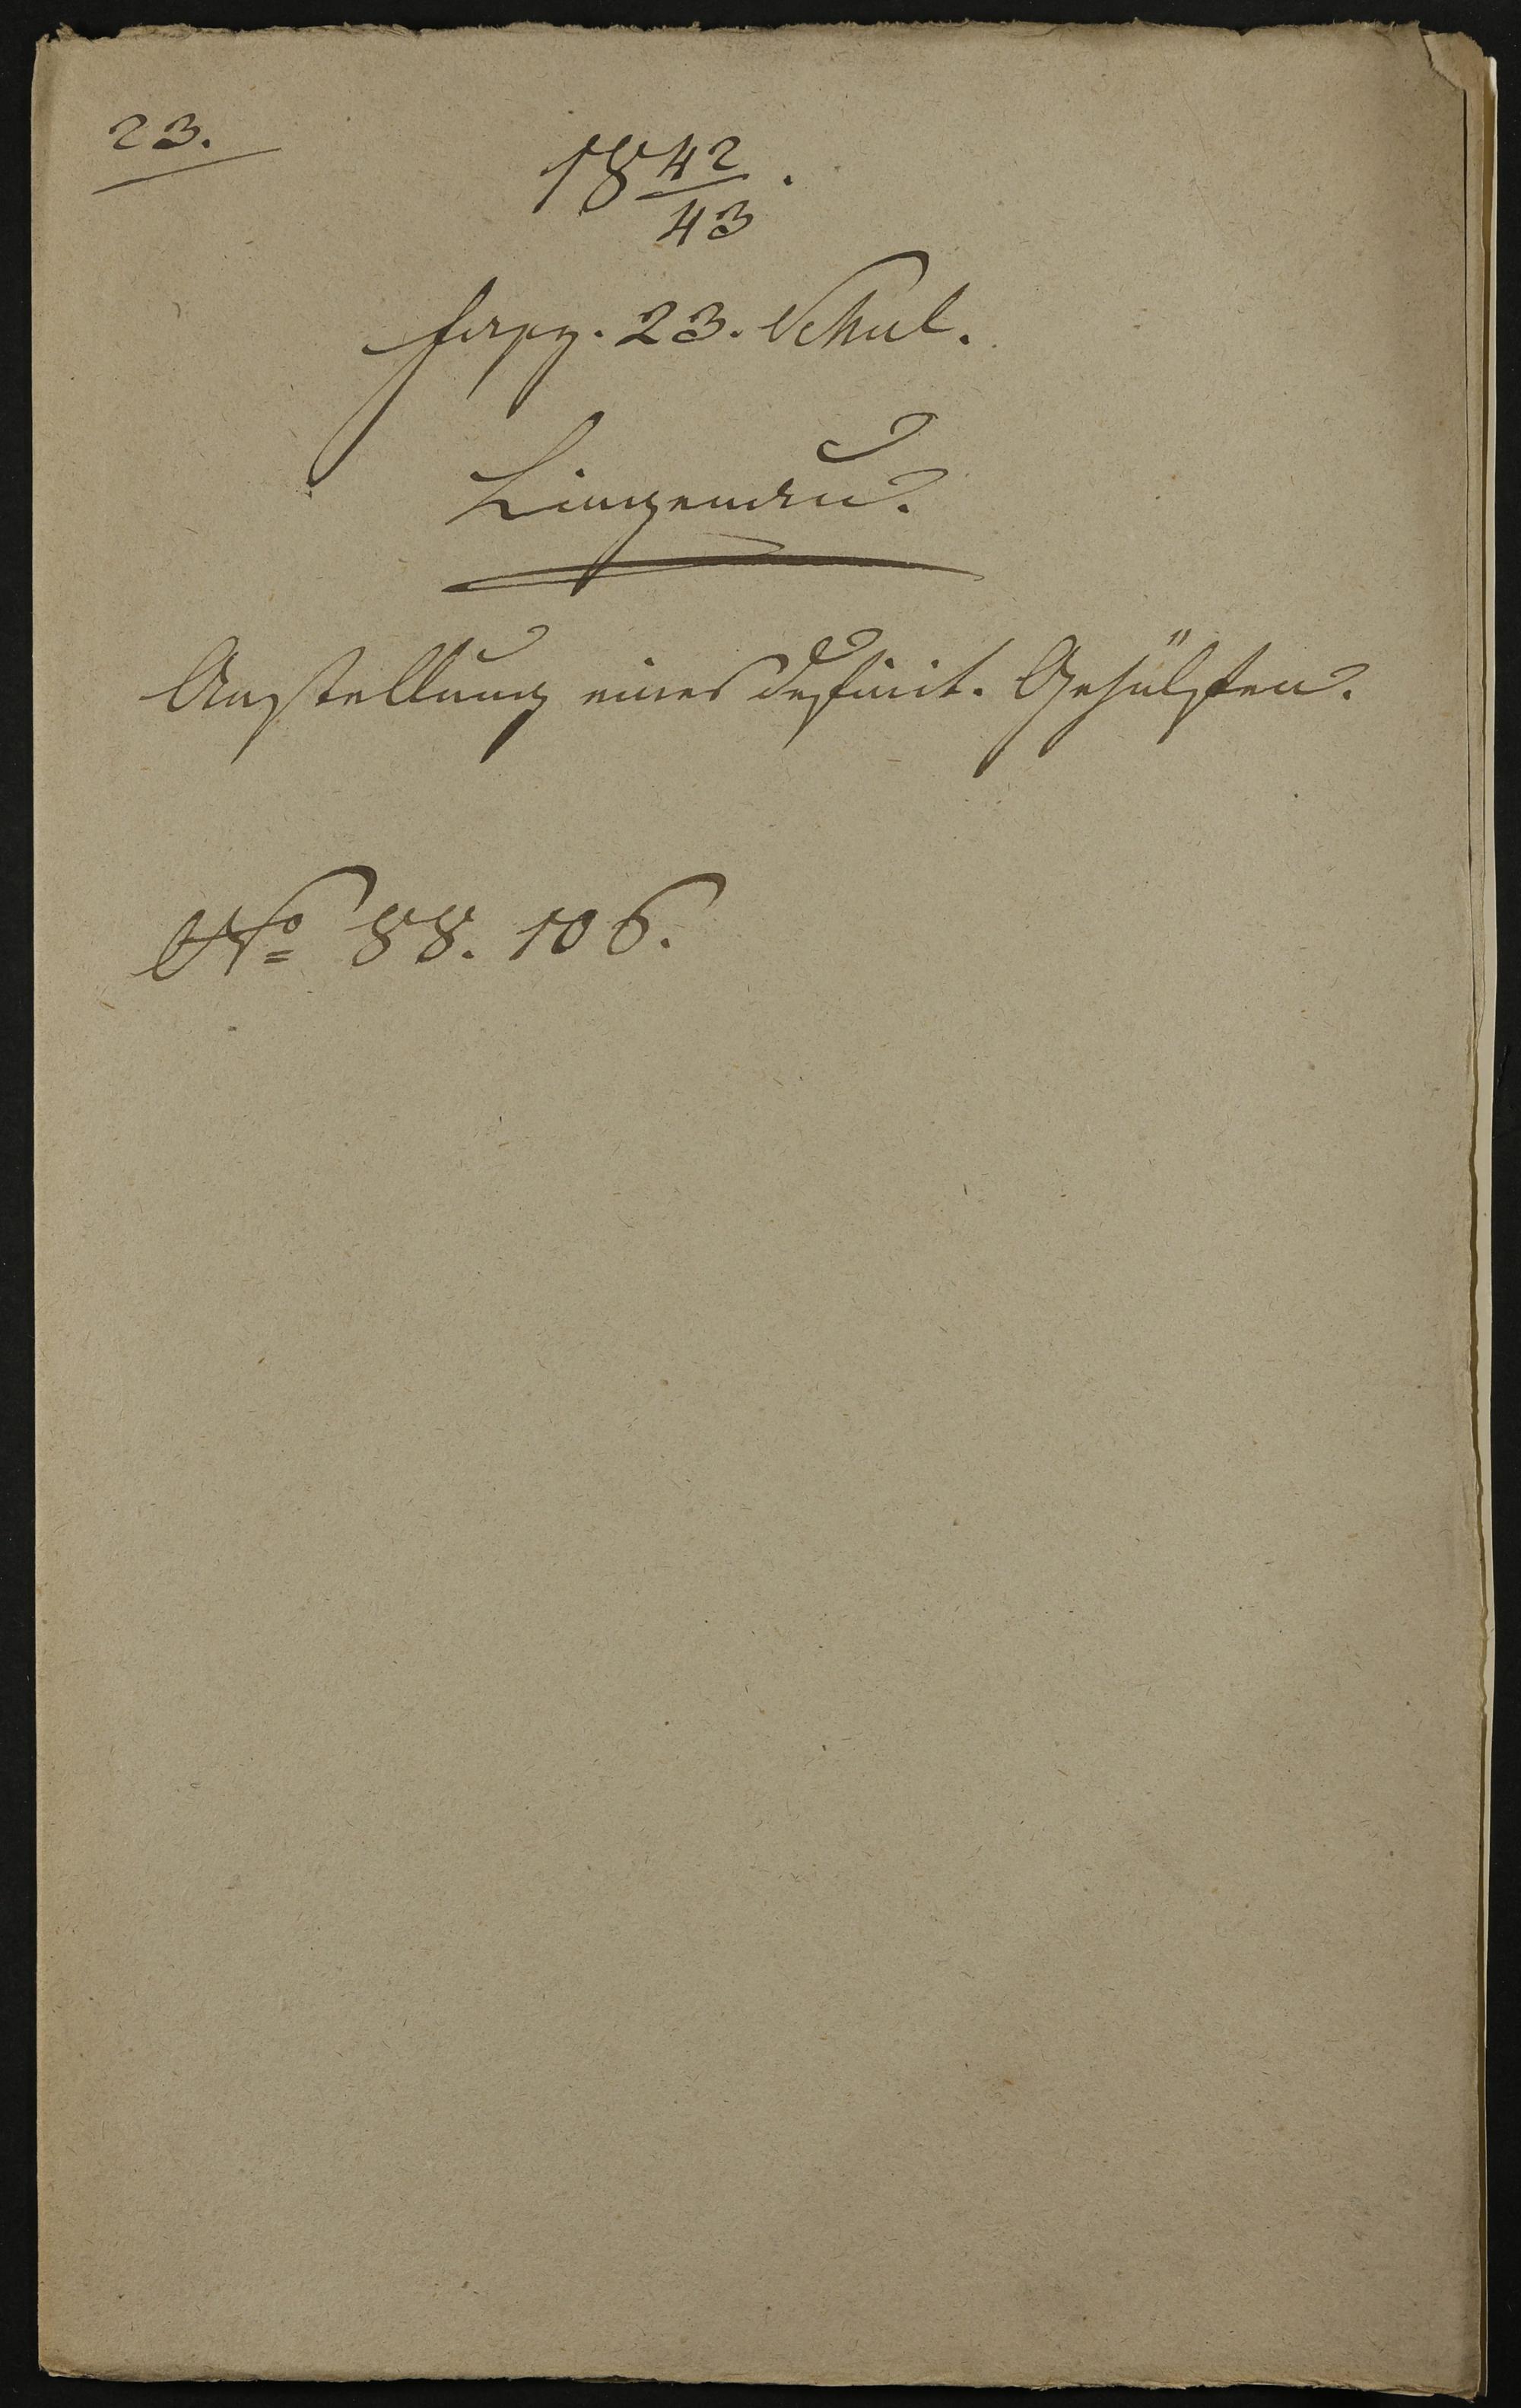 23.
18 42/43.
fasz. 23. Schul.
Lingenau.
Anstellung eines definit. Gehülften.
No 88. 106.